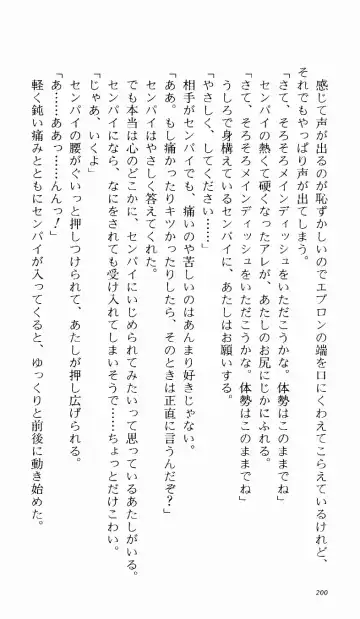 感じて声が出るのが恥ずかしいのでエプロンの端を口にくわえてこらえているけれど、
それでもやっぱり声が出てしまう。
「さて、そろそろメインディッシュをいただこうかな。体勢はこのままでね」
センパイの熱くて硬くなったアレが、あたしのお尻にじかにふれる。
「さて、そろそろメインディッシュをいただこうかな。体勢はこのままでね」
うしろで身構えているセンパイに、あたしはお願いする。
「やさしく、してください……」
相手がセンパイでも、痛いのや苦しいのはあんまり好きじゃない。
「ああ。もし痛かったりキツかったりしたら、そのときは正直に言うんだぞ?」
センパイはやさしく答えてくれた。
でも本当は心のどこかに、センパイにいじめられてみたいって思っているあたしがいる。
センパイになら、なにをされても受け入れてしまいそうで……ちょっとだけこわい。
「じゃあ、いくよ」
センパイの腰がぐいっと押しつけられて、あたしが押し広げられる。
「あ……ああっ……んんっ!」
軽く鈍い痛みとともにセンパイが入ってくると、ゆっくりと前後に動き始めた。
200